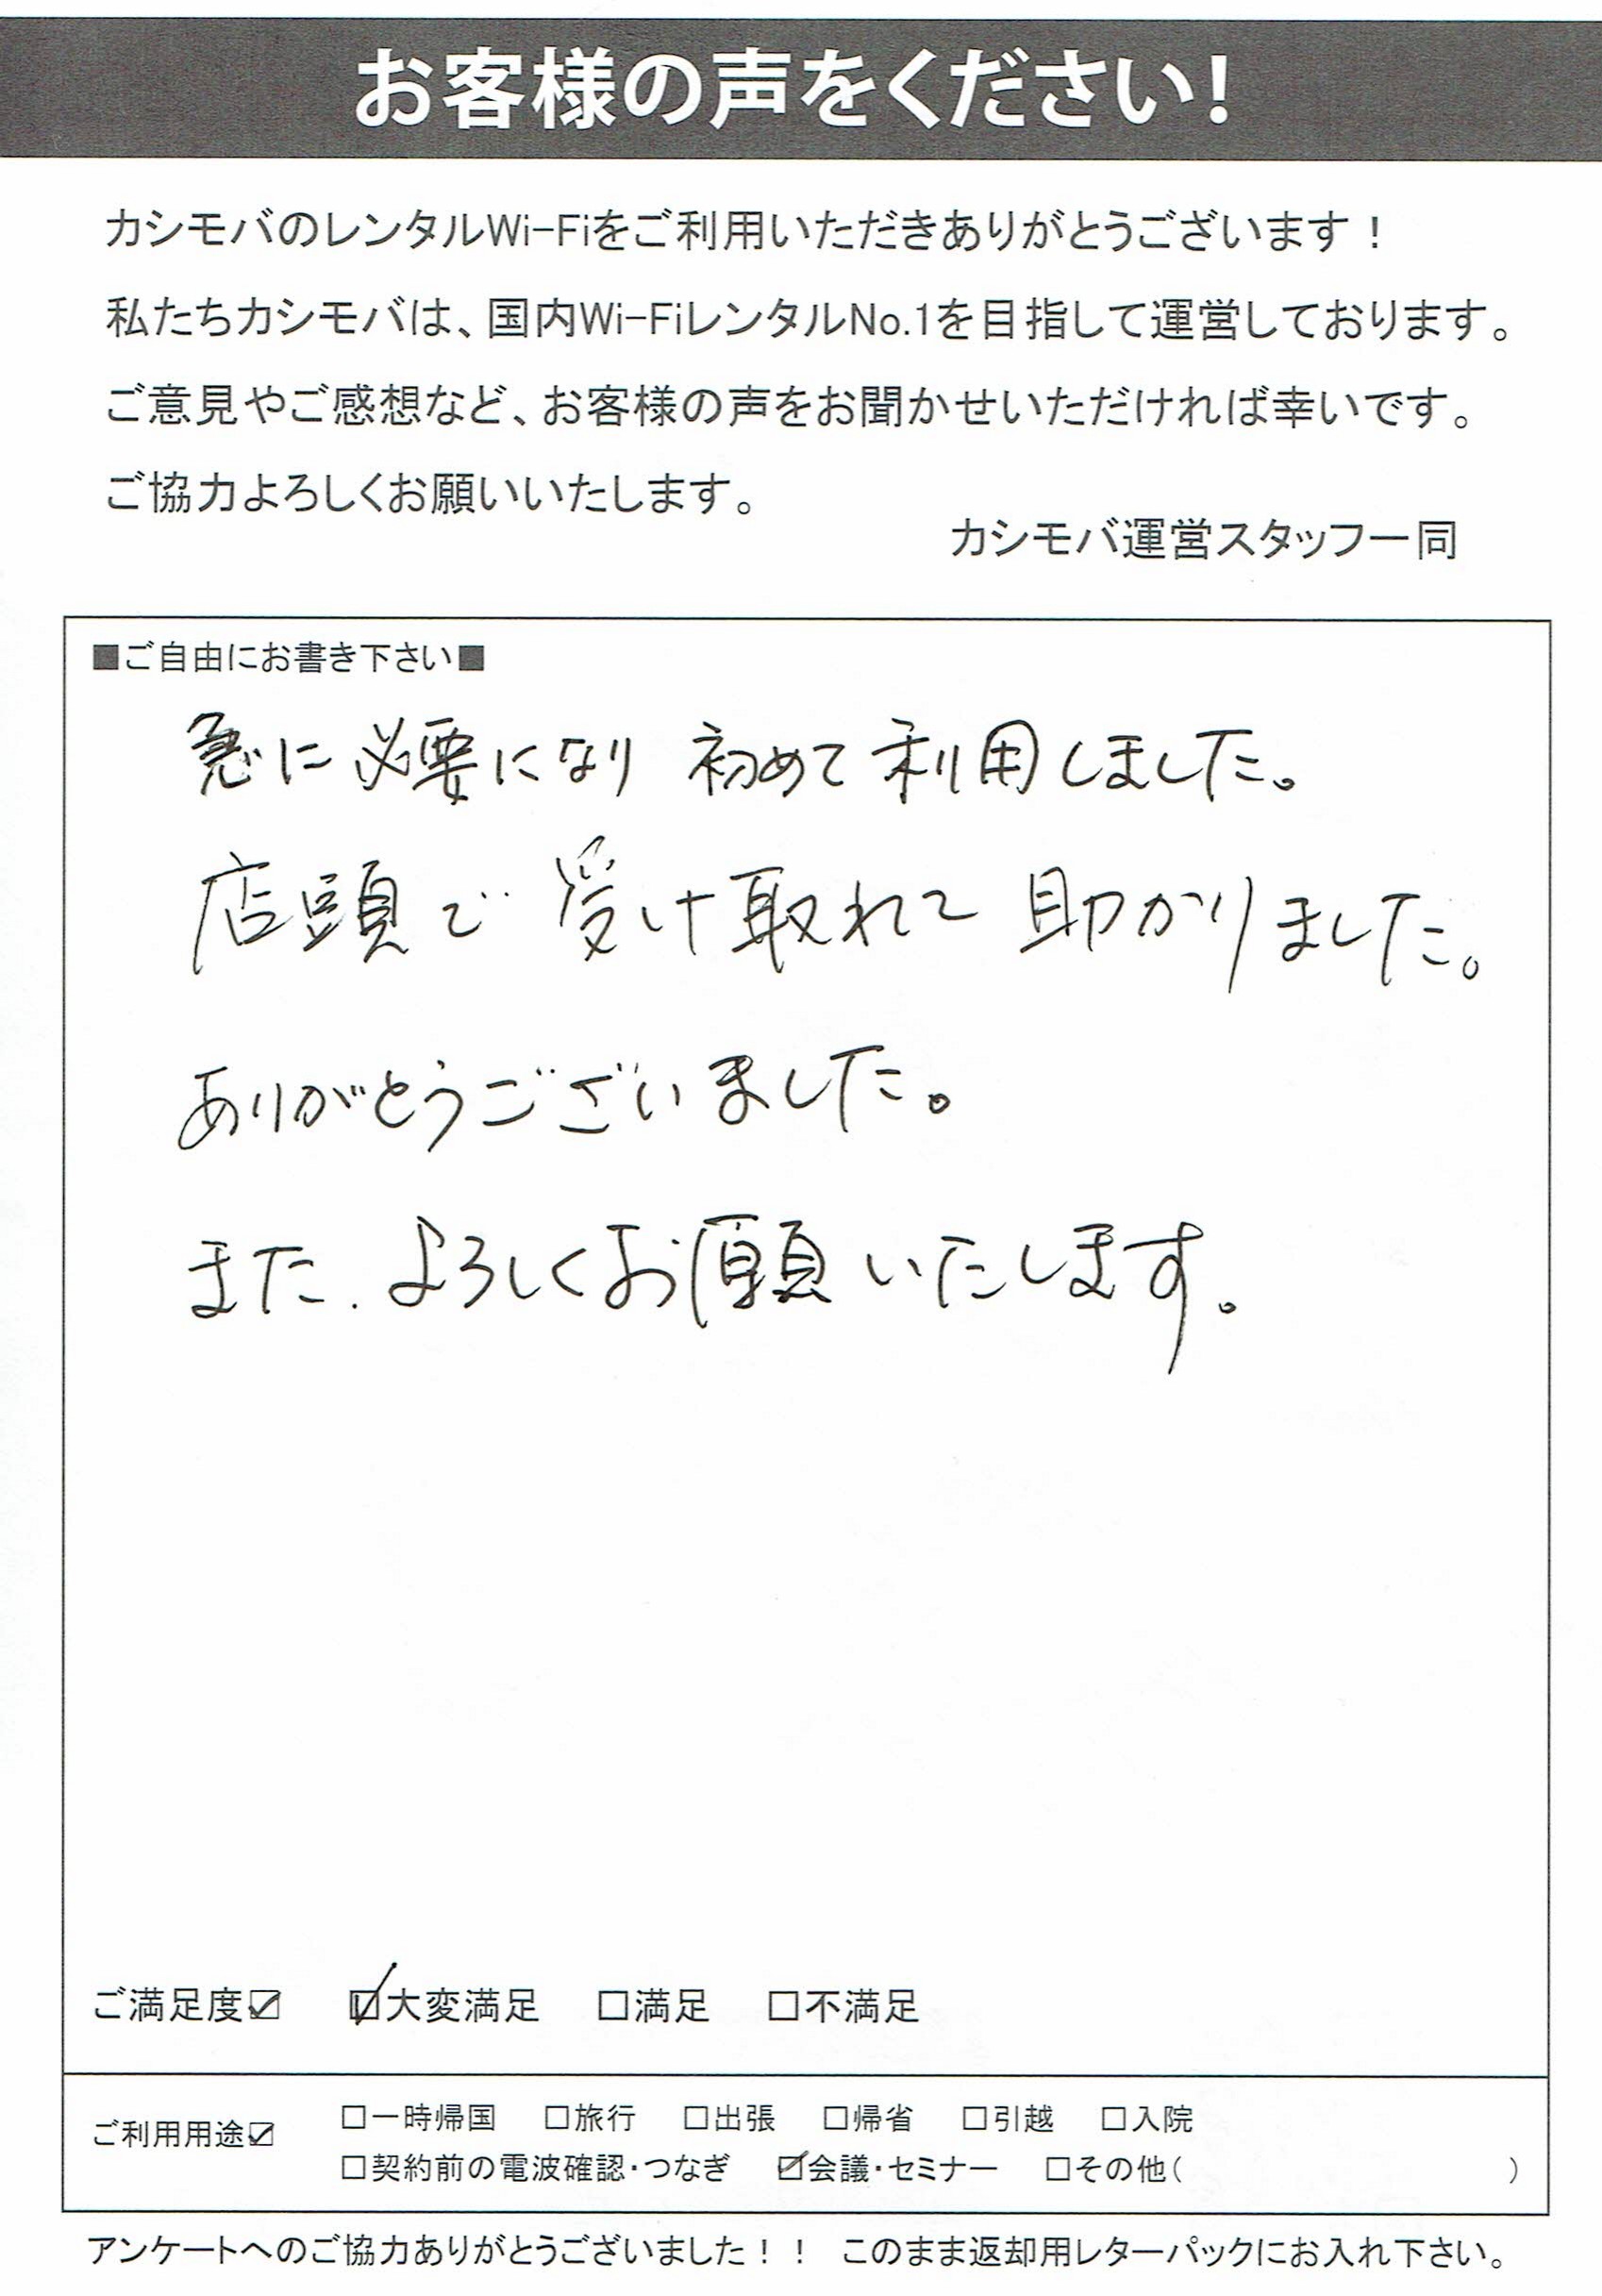 お客様の声をください!
カシモバのレンタルWi-Fiをご利用いただきありがとうございます！
私たちカシモバは、国内Wi-FiレンタルNo.1を目指して運営しております。
ご意見やご感想など、お客様の声をお聞かせいただければ幸いです。
ご協力よろしくお願いいたします。
カシモバ運営スタッフ一同
■ご自由にお書き下さい■
急に必要になり 初めて利用しました。
店頭で受け取れて 助かりました。
ありがとうございました。
また、よろしくお願いいたします。
ご満足度☑ ☑大変満足 □満足 □不満足
ご利用用途☑ □一時帰国 □旅行 □出張 □帰省 □引越 □入院
□契約前の電波確認・つなぎ ☑会議・セミナー □その他( )
アンケートへのご協力ありがとうございました！！ このまま返却用レターパックにお入れ下さい。